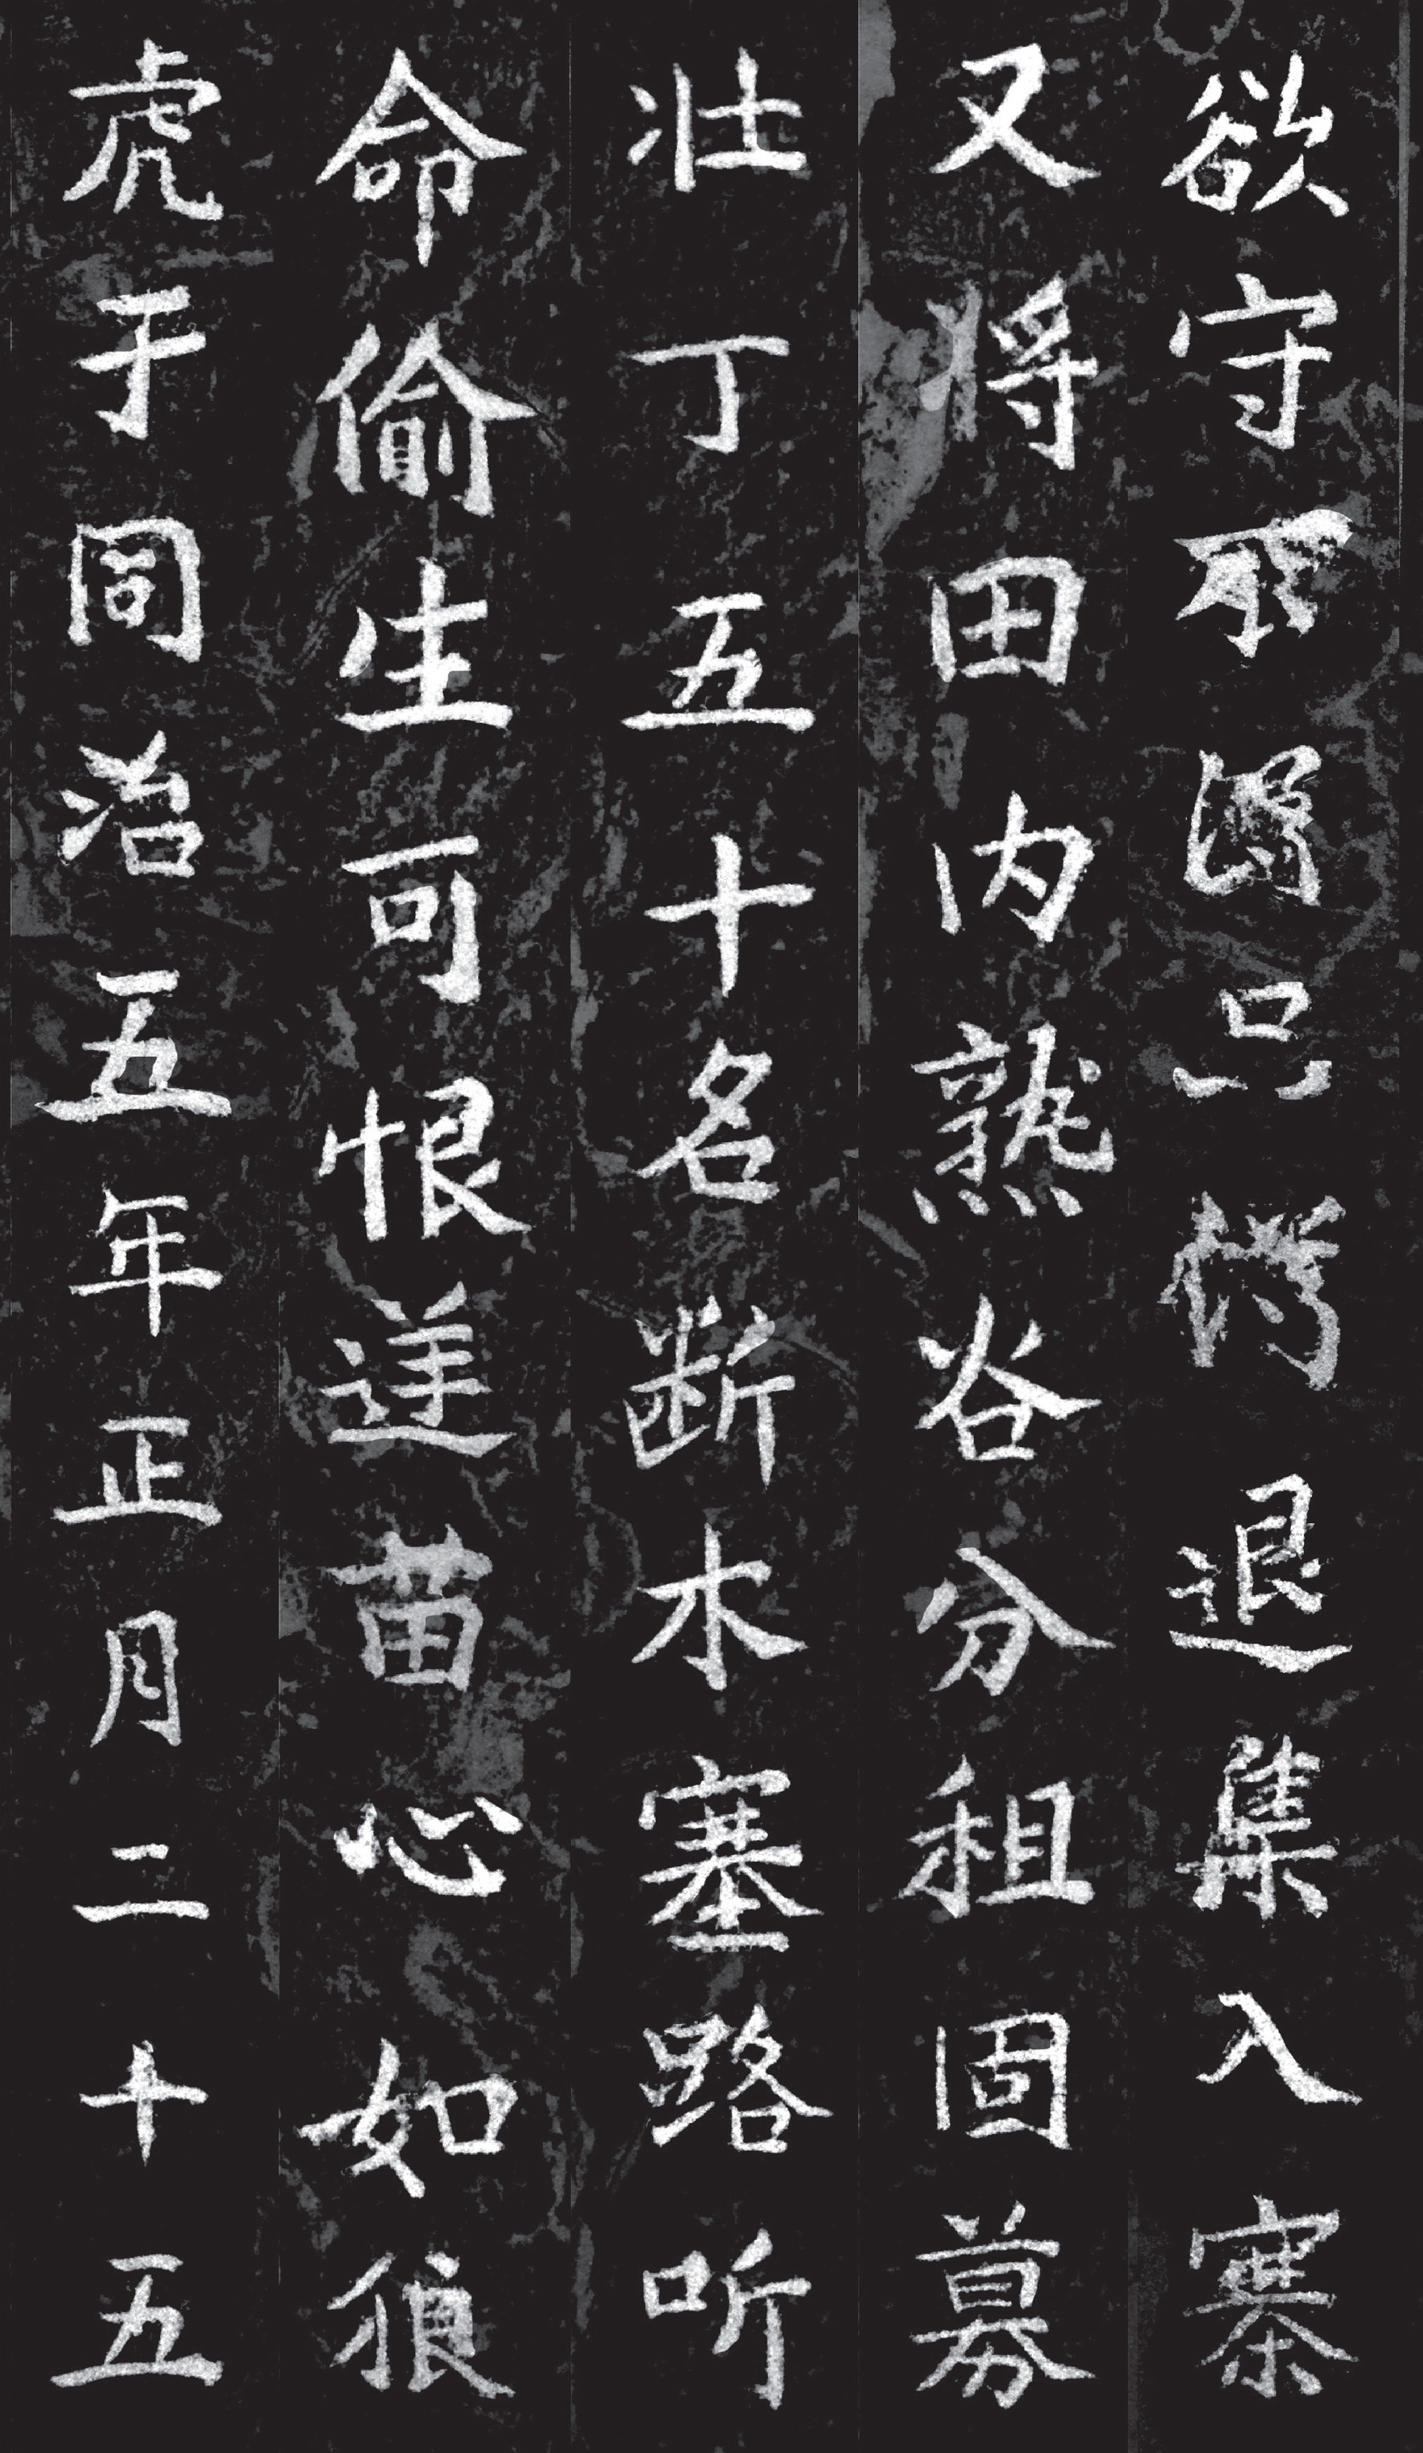 欲守只退集入寨
又将田内熟谷分租固募
壮丁五十名断木塞路听
命偷生可恨逆苗心如狼
虎于同治五年正月二十五